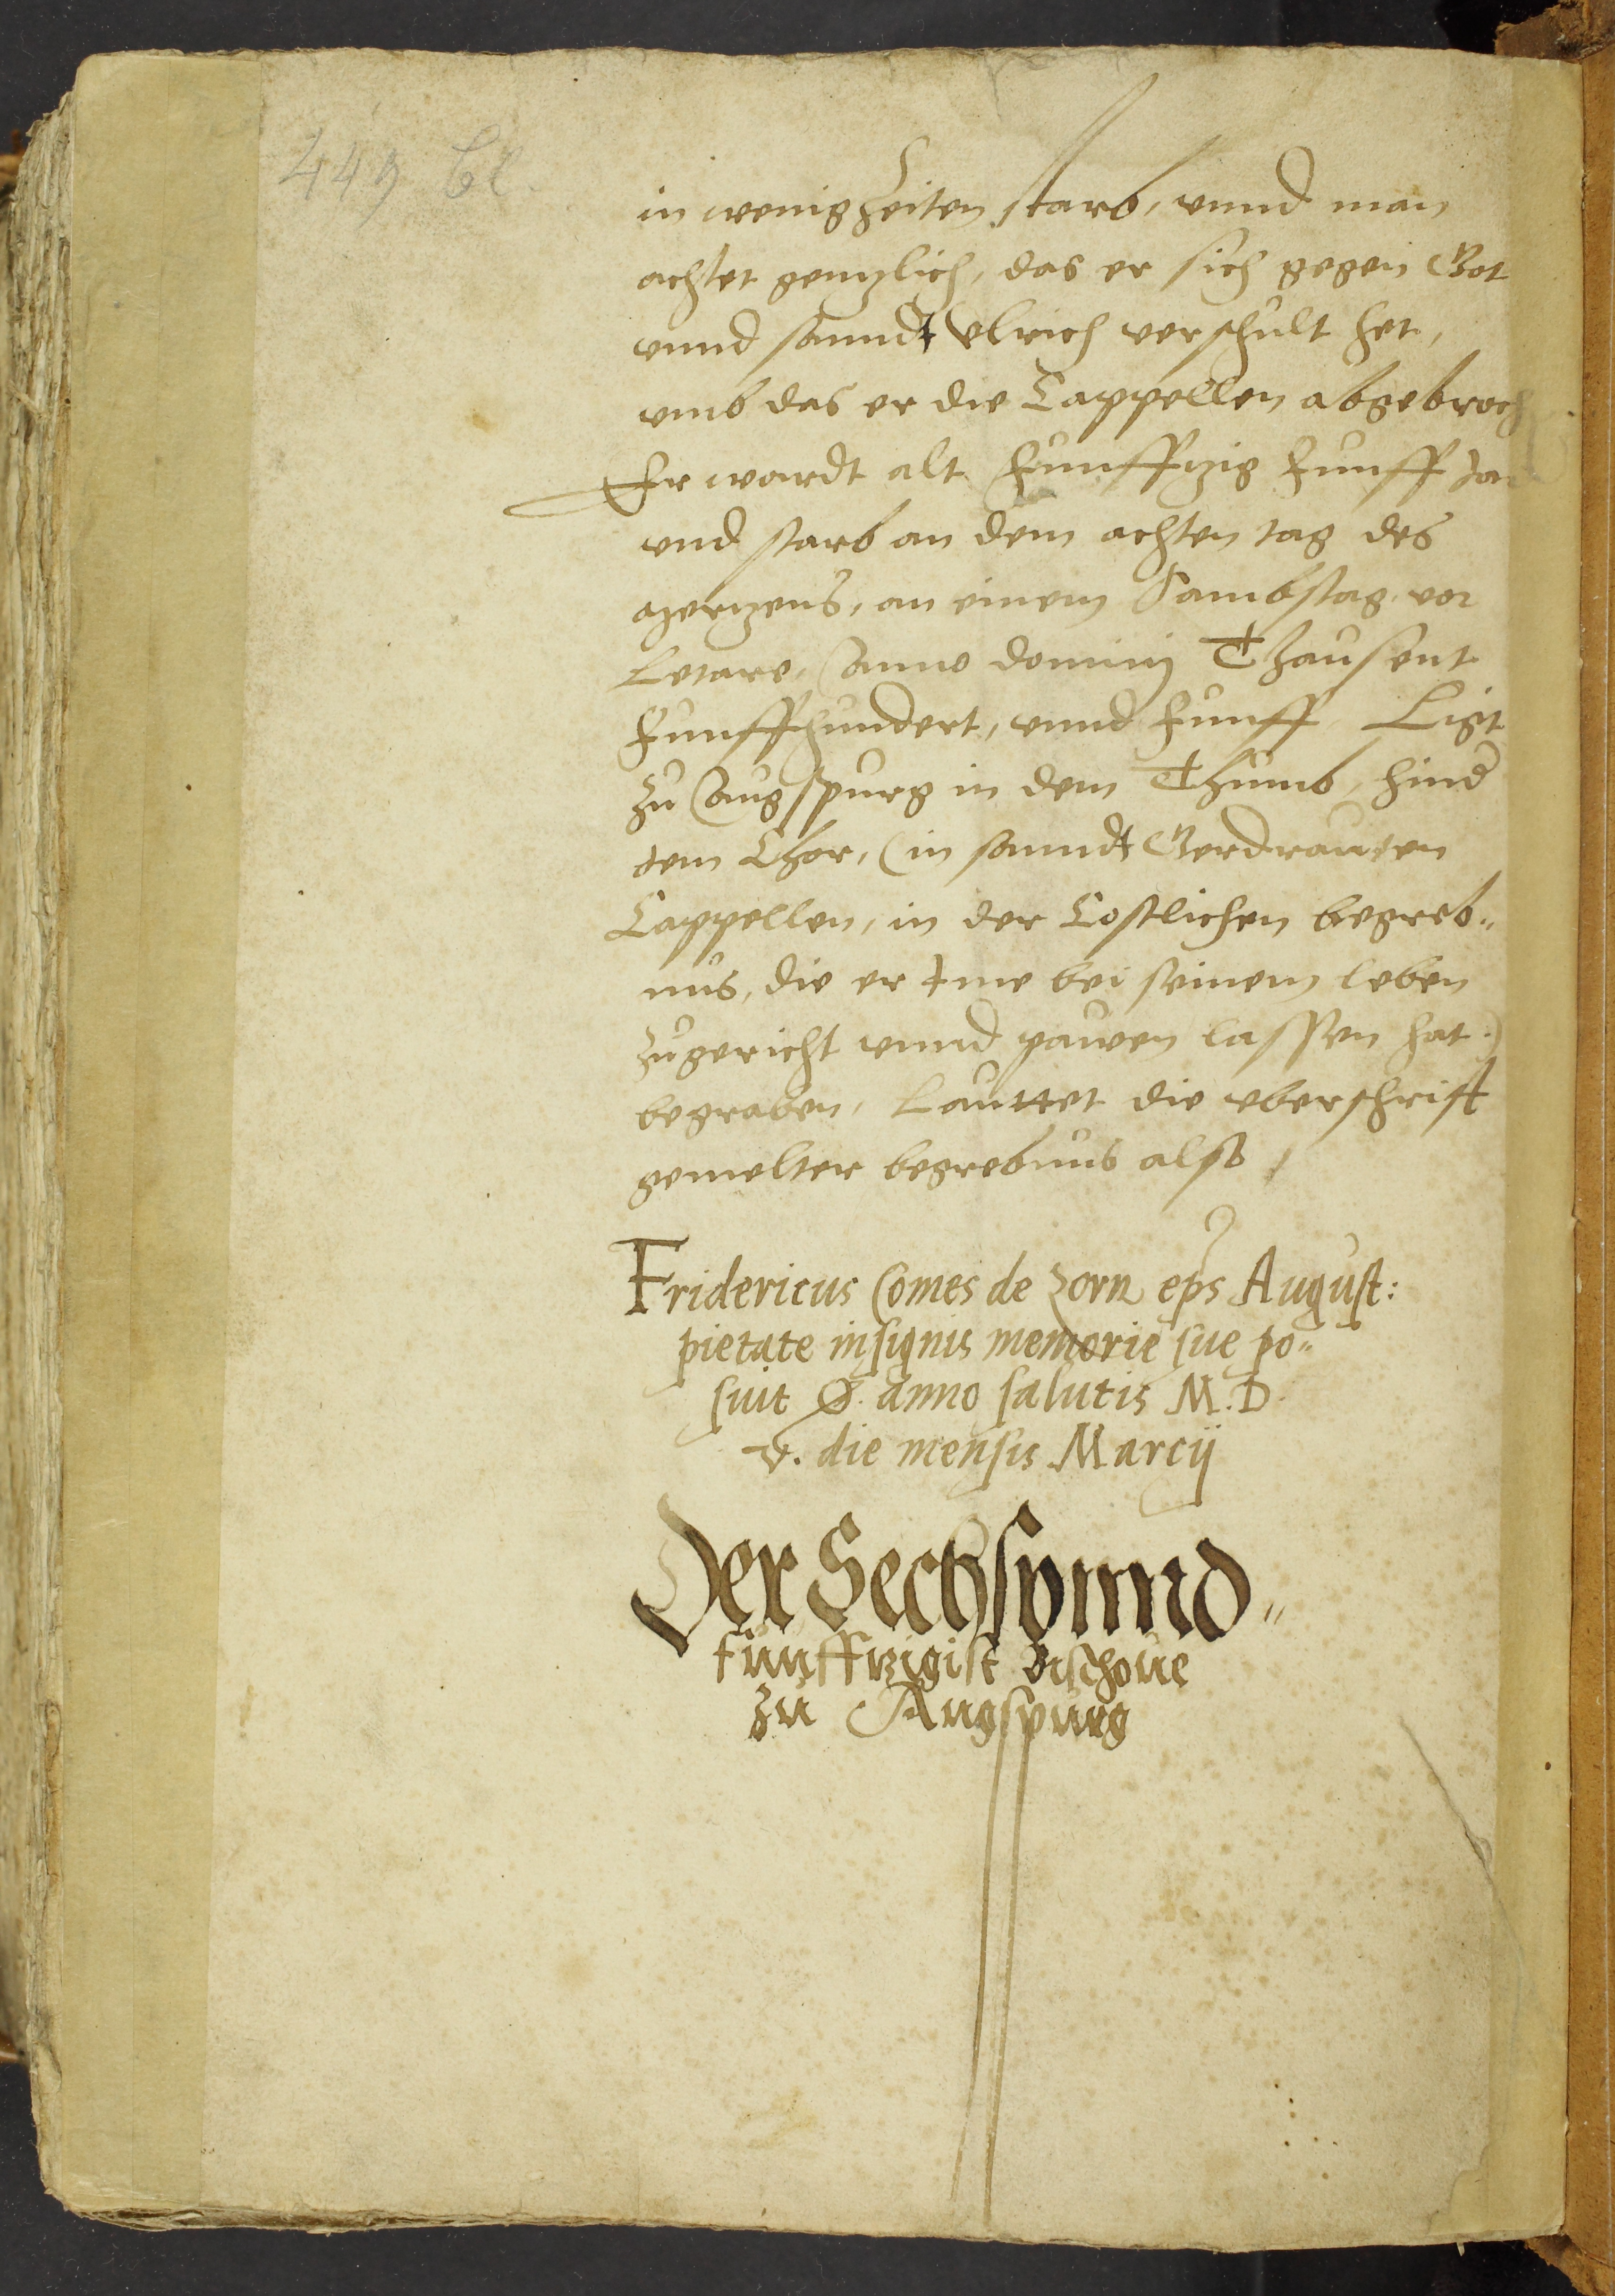 449 bl.
in wenig Zeiten starb, vnnd man
achtet gentzlich, das er sich gegen Got
vnnd sanndt Vlrich verschult het,
vmb das er die Cappellen abgebroch
Er wardt alt Funfftzig Funff Jar
vnd starb an dem achten tag des
Mertzens, an einem Sambstag vor
Letare, Anno dominj Thausent
Funffhundert, vnnd Funff Ligt
zu Augspurg in dem Thumb, hind
dem Chor, (in sanndt Gerdrauten
Cappellen, in der Costlichen begreb„
nus, die er Ime bei seinem leben
zugericht vnnd pawen lassen hat.)
begraben, Lauttet die vberschrifft
gemelter begrebnus also
Fridericus Comes de Zorn eps August:
pietate insignis memorie sue po„
suit anno salutis M. D.
v. die mensis Marcij
Der Sechsvnnd„
fünfftzigist Bischoue
zu Augspurg